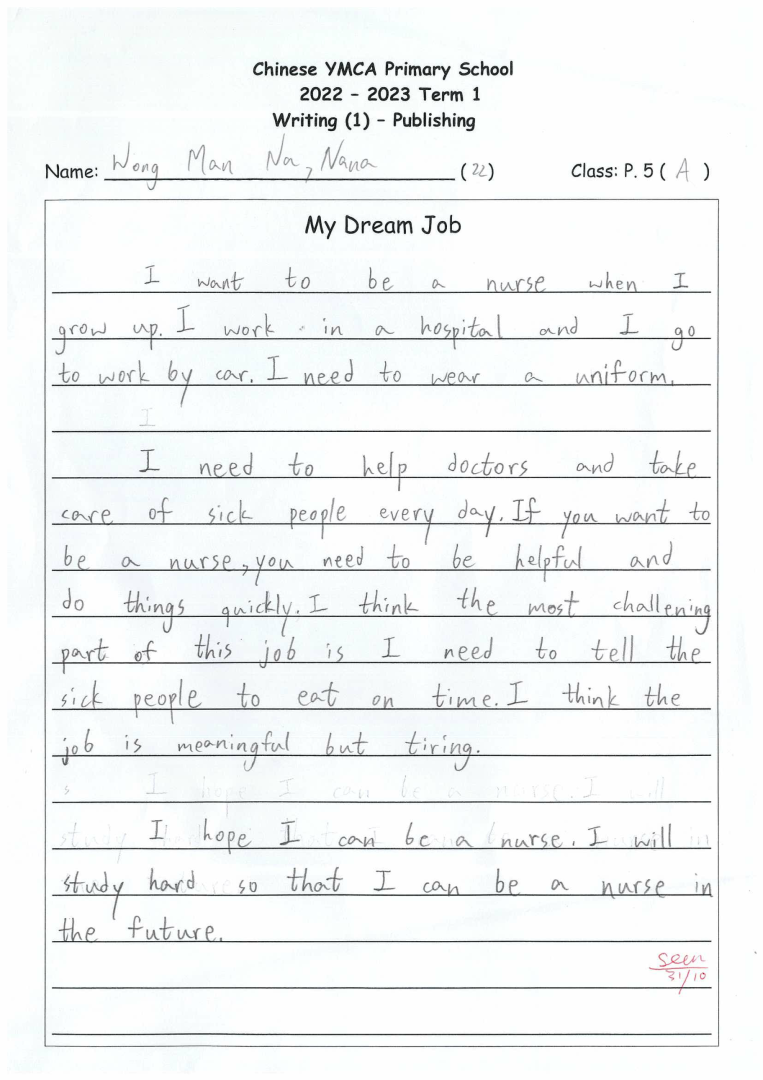 Chinese YMCA Primary School
2022 - 2023 Term 1
Writing (1) - Publishing
Name: Wong Man Na, Nana (22) Class: P. 5 ( A )
My Dream Job
I want to be a nurse when I
grow up. I work in a hospital and I go
to work by car. I need to wear a uniform.
I
I need to help doctors and take
care of sick people every day. If you want to
be a nurse, you need to be helpful and
do things quickly. I think the most challening
part of this job is I need to tell the
sick people to eat on time. I think the
job is meaningful but tiring.
I hope I can be a nurse. I will
I hope I can be a nurse. I will
study hard so that I can be a nurse in
the future.
seen
31/10